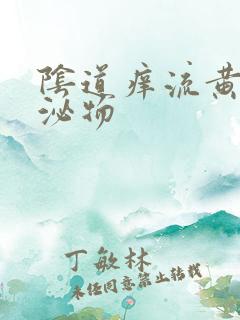 陰道痒流黄
泌物
丁敏林
未经同意禁止转载